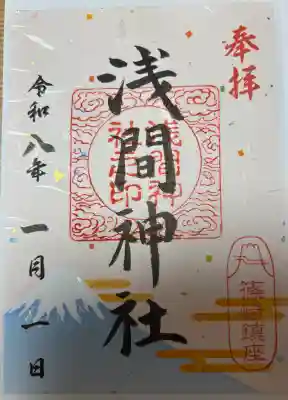 奉拝
浅間神社
浅間神
社之印
篠崎鎮座
令和八年
一月一日